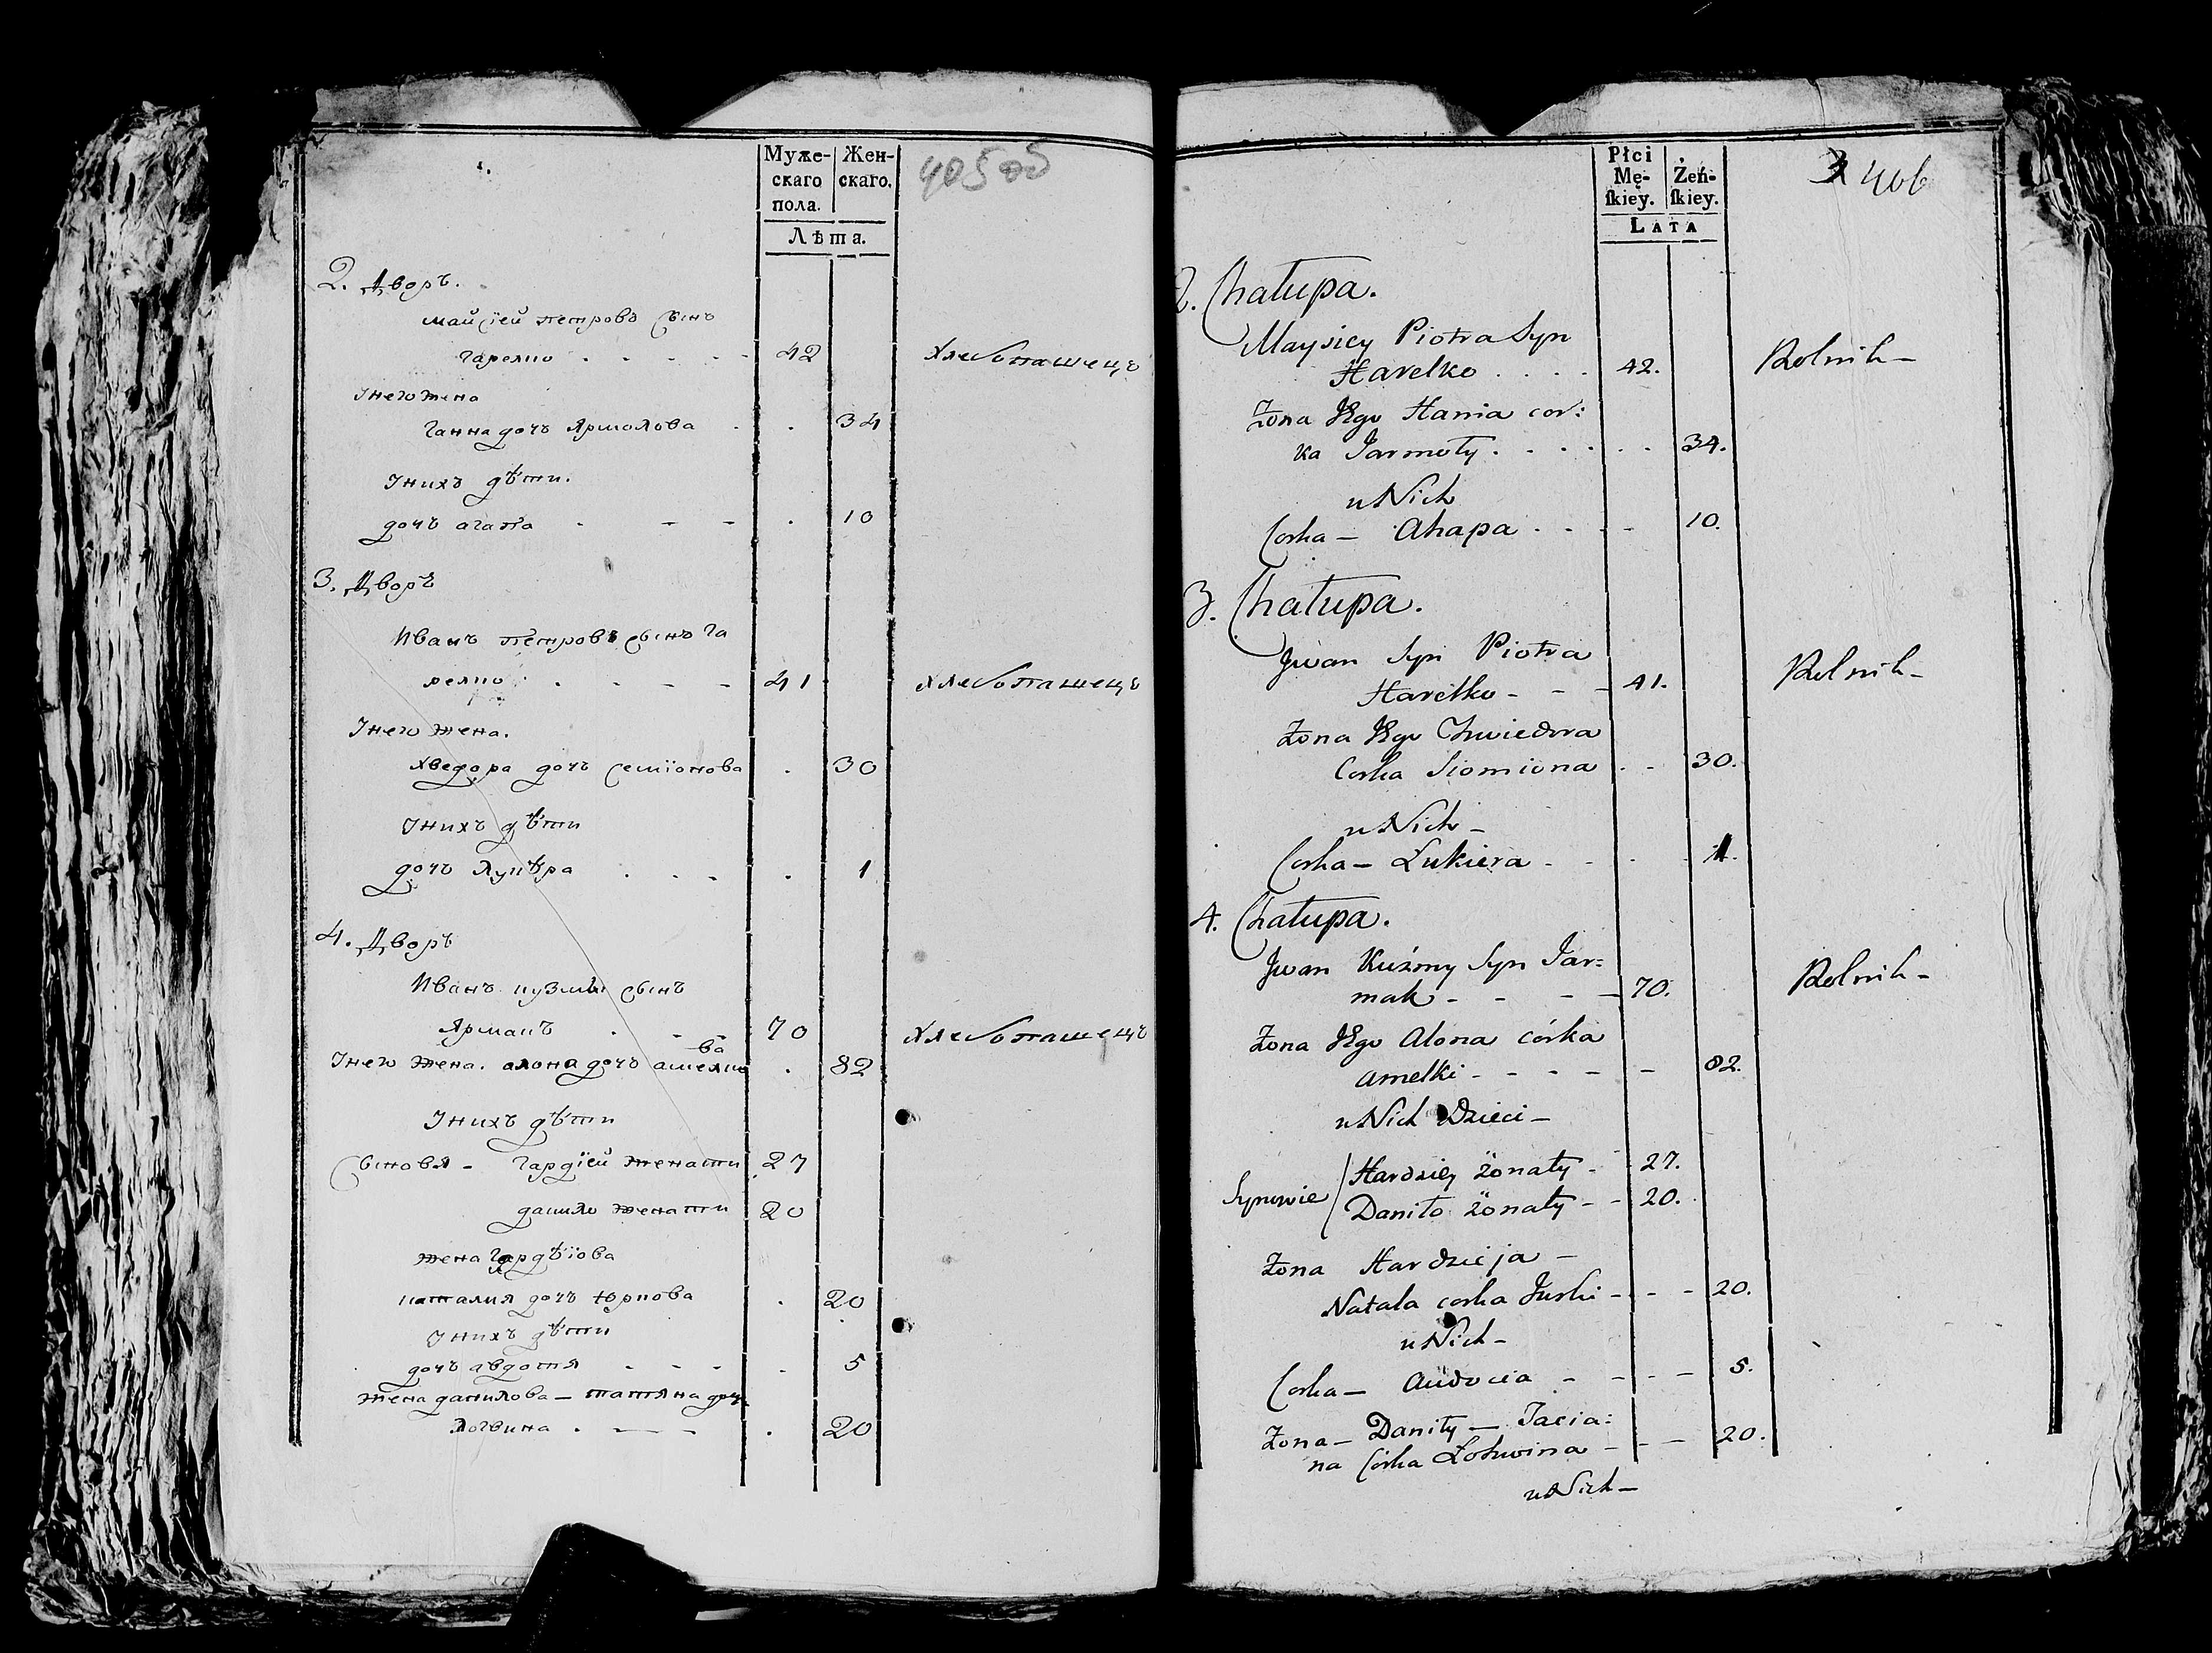 Муже-
скаго
пола.
Жен-
скаго.
Лѣта.
405 об
2. Дворъ.
майсіей петровъ сынъ
гарелко . . . . . 42 хлебопашецъ
Унего жена
ганна дочъ Ярмолова . . 34
Унихъ дѣти.
дочъ агапа . - - . 10
3. Дворъ
Иванъ петровъ сынъ га
релко . . - - - 41 хлебопашецъ
Унего жена.
хведора дочъ семіонова . 30
Унихъ дѣти
дочъ лукѣра . . . . 1
4. Дворъ
Иванъ кузмы сынъ
Ярмакъ . - - 70 хлебопашецъ
Унего жена. алона дочъ амелко
ва . 82
Унихъ дѣти
Сыновя - гардіей женати 27
данило женати 20
жена гардѣіова
наталия дочъ юркова . 20
Унихъ дѣти
дочъ авдотя - - - . 5
жена данилова - татяна дочъ
логвина . - - . 20
Płci
Mę-
ſkiey.
Żeń-
ſkiey.
LATA
3 406
2. Chałupa.
Maysiey Piotra Syn
Harelko . . . . 42. Rolnik -
Żona Jego Hania cor:
ka Jarmoły . . . . . . 34.
u Nich
Corka - Ahapa . . . - 10.
3. Chałupa.
Jwan Syn Piotra
Harelko - - - 41. Rolnik -
Żona Jego Chwiedora
Corka Siomiona . - 30.
u Nich -
Corka - Łukiera - - . . 1.
4. Chałupa.
Jwan Kuźmy Syn Jar:
mak - - - - 70. Rolnik -
Żona Jego Alona córka
Amelki - - - - - 82.
u Nich Dzieci -
Synowie
Hardziey żonaty - 27.
Daniło żonaty - - 20.
Żona Hardzieja -
Natala corka Jurki - - - 20.
u Nich -
Corka - Audocia - - - - 5.
Żona - Daniły - Tacia:
na Corka Łohwina - - - 20.
u Nich -